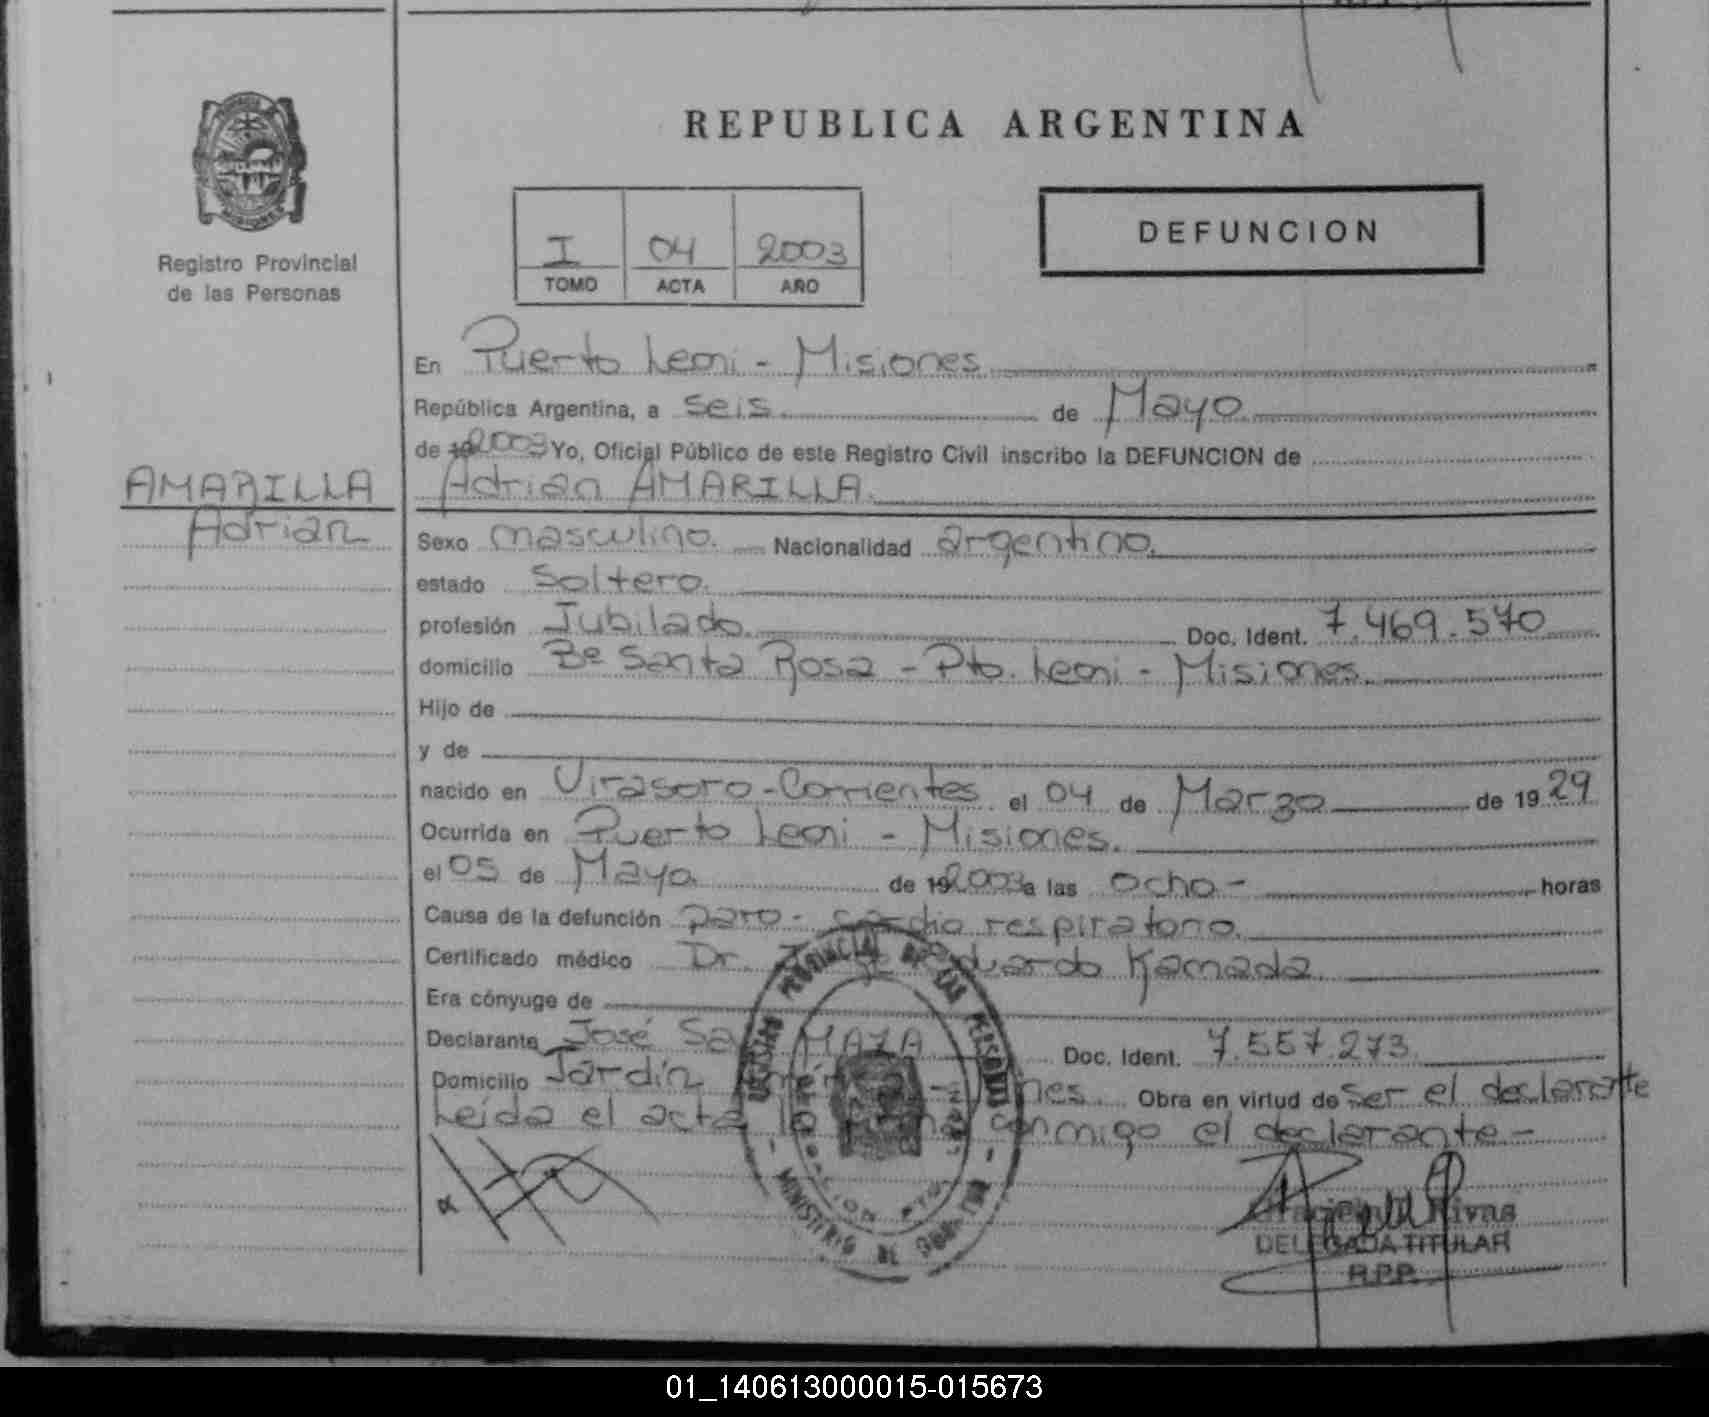 REPUBLICA ARGENTINA
PROVINCIA
MISIONES
Registro Provincial
de las Personas
I 04 2003
TOMO ACTA AÑO
DEFUNCION
En Puerto Leoni - Misiones
República Argentina, a seis. de Mayo
de 19 2003 Yo, Oficial Público de este Registro Civil inscribo la DEFUNCION de
AMARILLA
Adrian
Adrian AMARILLA.
Sexo masculino. Nacionalidad argentino.
estado Soltero.
profesión Jubilado. Doc. Ident. 7.469.570
domicilio Bº Santa Rosa - Pto. Leoni - Misiones.
Hijo de
y de
nacido en Virasoro - Corrientes el 04 de Marzo de 19 29
Ocurrida en Puerto Leoni - Misiones.
el 05 de Mayo de 19 2003 a las ocho - horas
Causa de la defunción paro - cardio respiratorio.
Certificado médico Dr. Eduardo Kamada
Era cónyuge de
Declarante José MAZA Doc. Ident. 7.557.273
Domicilio Jardín Obra en virtud de ser el declarante
Leida el acta la conmigo el declarante -
REGISTRO PROVINCIAL DE LAS PERSONAS
MINISTERIO DE
Rivas
DELEGADA TITULAR
R.P.P.
01_140613000015-015673